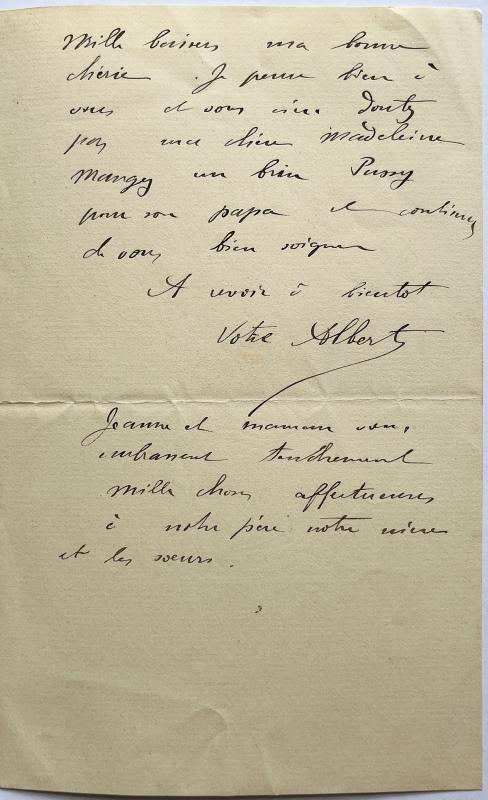 Mille baisers ma bonne
chérie. Je pense bien à
vous et vous n'en doutez
pas ma chère Madeleine
Mangez un bien Pussy
pour son papa et continuez
de vous bien soigner
A revoir à bientot
Votre Albert
Jeanne et maman vous
embrassent tendrement
Mille choses affectueuses
à notre père notre mère
et les soeurs.